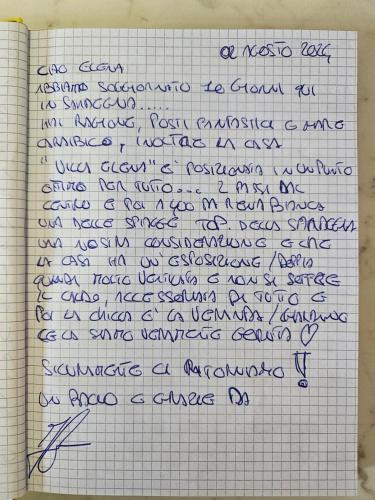 02 AGOSTO 2024
CIAO ELENA
ABBIAMO SOGGIORNATO 10 GIORNI QUI
IN SARDEGNA.....
HAI RAGIONE, POSTI FANTASTICI E MARE
CARAIBICO, INOLTRE LA CASA
"VILLA ELENA" E' POSIZIONATA IN UN PUNTO
OTTIMO PER TUTTO... 2 PASSI DAL
CENTRO E POI A 400 M RENA BIANCA
UNA DELLE SPIAGGE TOP. DELLA SARDEGNA
UNA NOSTRA CONSIDERAZIONE E CHE
LA CASA HA UN'ESPOSIZIONE /DOPPIA
QUINDI MOLTO VENTILATA E NON SI SOFFRE
IL CALDO, ACCESSORIATA DI TUTTO E
POI LA CHICCA E' LA VERANDA /GIARDINO
CE LA SIAMO VERAMENTE GODUTA ♡
SICURAMENTE CI RITORNEREMO!
UN BACIO E GRAZIE DA